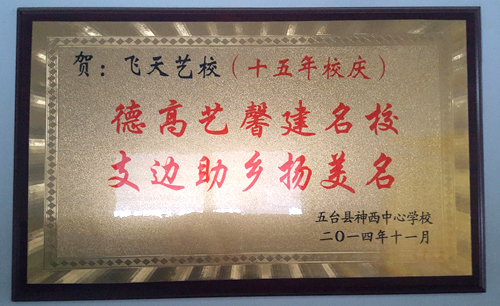 贺：飞天艺校（十五年校庆）
德高艺馨建名校
支边助乡扬美名
五台县神西中心学校
二〇一四年十一月